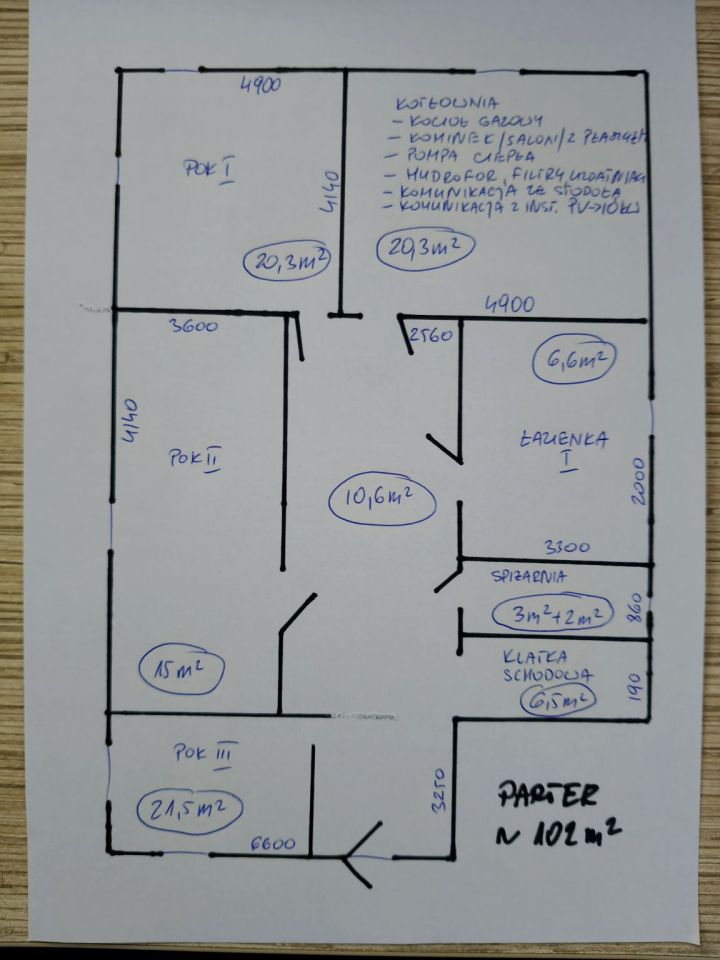 4900
KOTŁOWNIA
- KOCIOŁ GAZOWY
- KOMINEK/SALON/Z PŁASZCZEM
- POMPA CIEPŁA
- HYDROFOR, FILTRY, UZDATNIACZ
- KOMUNIKACJA ZE STODOŁĄ
- KOMUNIKACJA Z INST. PV->10KW
POK I
4140
20,3 m²
20,3 m²
3600
4900
2560
6,6 m²
4140
POK II
ŁAZIENKA
I
10,6 m²
2000
3300
SPIŻARNIA
3 m² + 2 m²
860
15 m²
KLATKA
SCHODOWA
6,5 m²
190
POK III
21,5 m²
3250
6600
PARTER
~ 102 m²